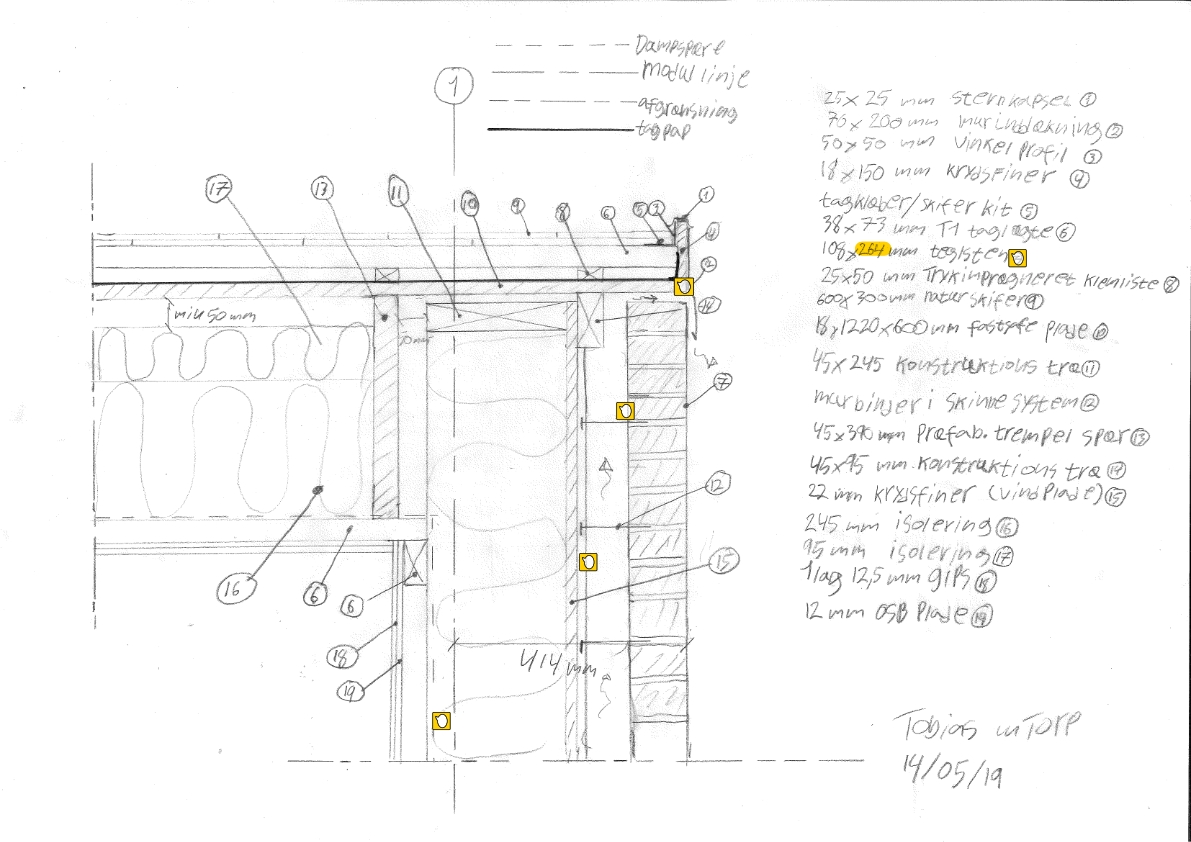 Dampspære
modul linje
afgrænsning
tagpap
1
17
13
11
10
9
8
6
5
3
1
4
2
14
min 50 mm
50 mm
7
12
15
16
6
6
18
19
414 mm
25x25 mm sternkapsel 1
70x200 mm murinddækning 2
50x50 mm vinkel profil 3
18x150 mm krydsfiner 4
tagklæber/skifer kit 5
38x73 mm T1 taglægte 6
108x264 mm teglsten
25x50 mm Trykimprægneret klemliste 8
600x300mm naturskifer 9
18x1220x600mm fastsæfe plade 10
45x245 Konstruktions træ 11
murbinjer i skinnesystem 12
45x390 mm Præfab. trempel spær 13
45x95 mm. Konstruktions træ 14
22 mm krydsfiner (vindplade) 15
245 mm isolering 16
95 mm isolering 17
1 lag 12,5 mm gips 18
12 mm OSB Plade 19
Tobias
14/05/19